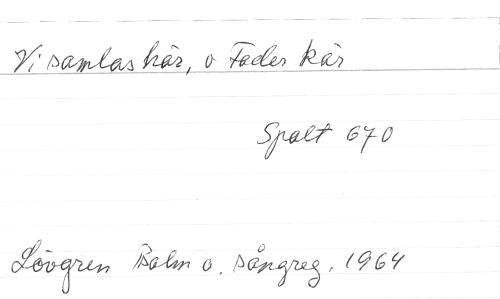 Vi samlas här, o Fader kär
Spalt 670
Lövgren Psalm o. sångreg. 1964